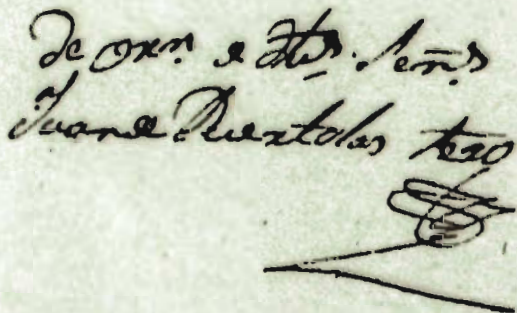 de orn. e dhõs. Señ.s
Juan de Puertolas terº